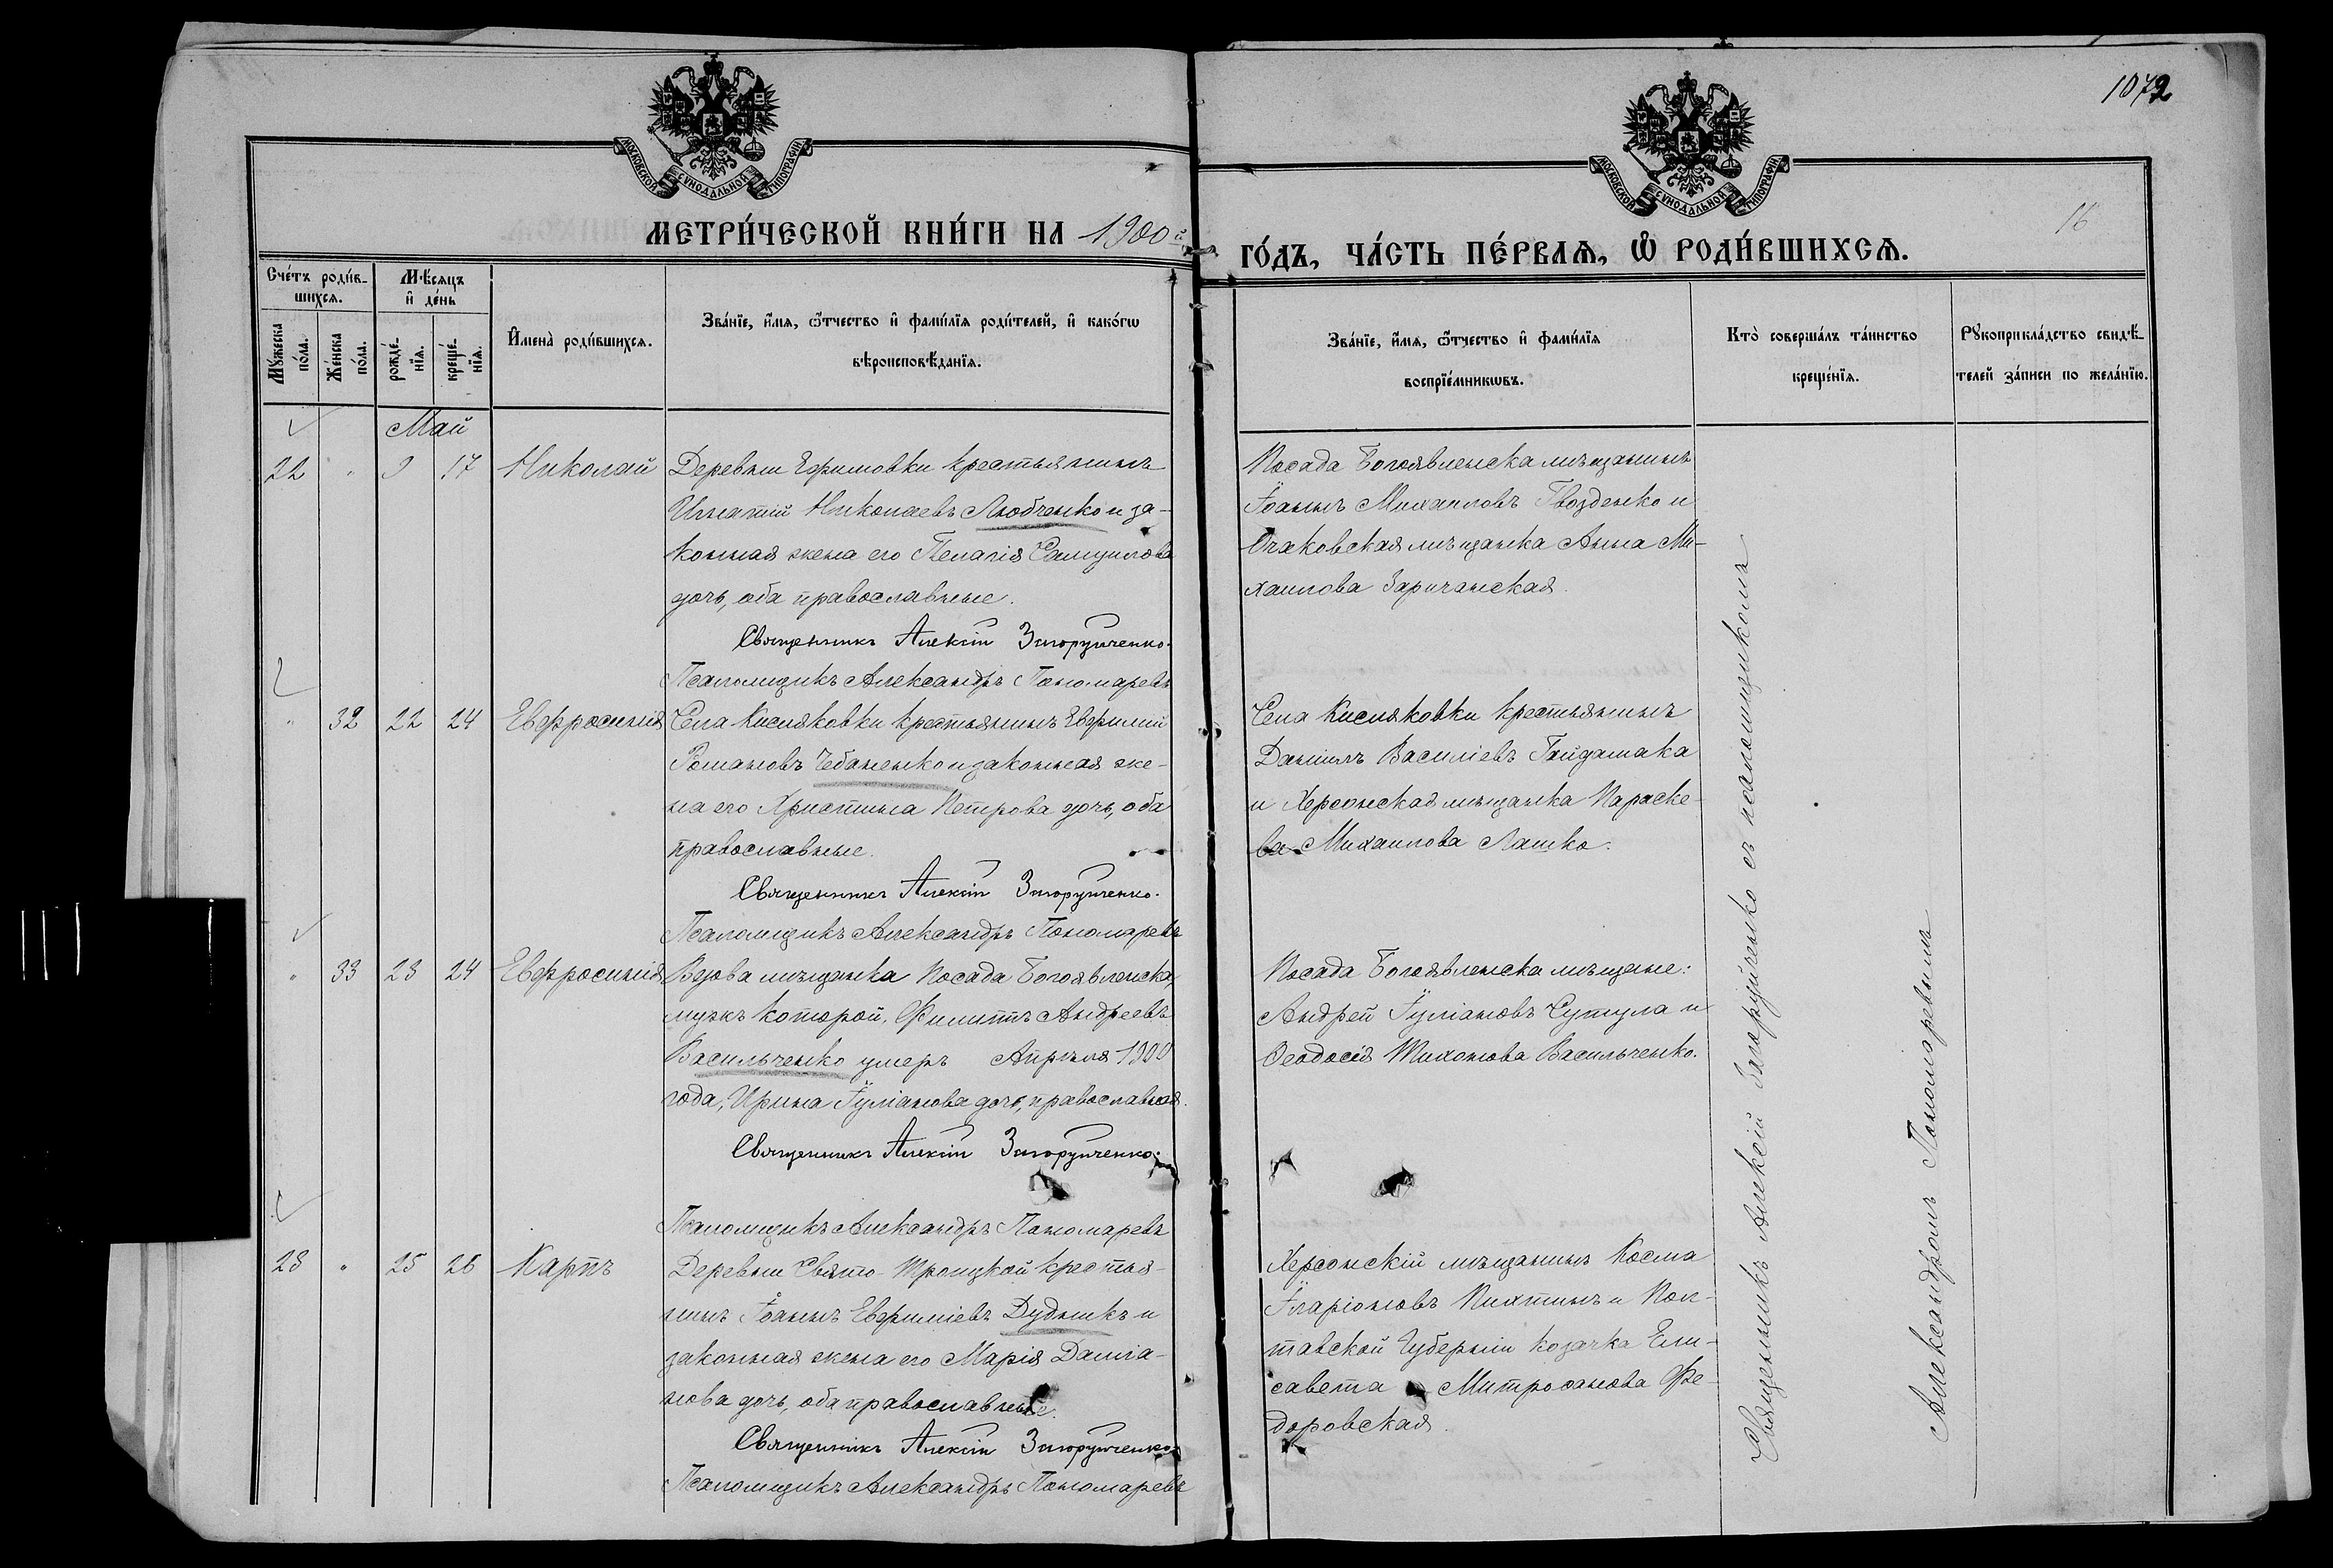 1072
16
МОСКОВСКОЙ СѴНОДАЛЬНОЙ ТИПОГРАФІИ
МОСКОВСКОЙ СѴНОДАЛЬНОЙ ТИПОГРАФІИ
МЕТРИ́ЧЕСКОЙ КНИ́ГИ НА 1900й
ГО́ДЪ, ЧА́СТЬ ПЕ́РВАѦ, Ѽ РОДИ́ВШИХСѦ.
Сче́тъ роди́в-
шихсѧ.
Мꙋ́жеска
по́ла.
Же́нска
по́ла.
Мѣ́сѧцъ
и҆ де́нь
рожде́-
нїѧ.
креще́-
нїѧ.
И҆мена̀ роди́вшихсѧ.
Зва́нїе, и҆́мѧ, ѻ҆́тчество и҆ фами́лїѧ роди́телей, и҆ како́гѡ
вѣроисповѣ́данїѧ.
Зва́нїе, и҆́мѧ, ѻ҆́тчество и҆ фами́лїѧ
воспрїе́мникѡвъ.
Кто̀ соверша́лъ та́инство
креще́нїѧ.
Рꙋкоприкла́дство свидѣ́-
телей за́писи по жела́нїю.
Май
22 " 9 17 Николай
Деревни Ефимовки крестьянинъ
Игнатій Николаевъ Любченко и за-
конная жена его Пелагія Самуилова
дочь, оба православные.
Священникъ Алексій Загоруйченко.
Псаломщикъ Александръ Пономаревъ
Посада Богоявленска мѣщанинъ
Іоаннъ Михаиловъ Гвозденко и
Очаковская мѣщанка Анна Ми-
хаилова Заричанская.
" 32 22 24 Евфросинія
Села Кисляковки крестьянинъ Евфимій
Романовъ Чебаненко и законная же-
на его Христина Петрова дочь, оба
православные.
Священникъ Алексій Загоруйченко.
Псаломщикъ Александръ Пономаревъ
Села Кисляковки крестьянинъ
Даніилъ Василіевъ Гайдамака
и Херсонская мѣщанка Параске-
ва Михаилова Лашко.
" 33 23 24 Евфросинія
Вдова мѣщанка Посада Богоявленска,
мужъ которой, Филиппъ Андреевъ
Васильченко умеръ Апрѣля 1900
года, Ирина Іуліанова дочь, православная.
Священникъ Алексій Загоруйченко.
Псаломщикъ Александръ Пономаревъ
Посада Богоявленска мѣщане:
Андрей Іуліановъ Сутула и
Ѳеодосія Тихонова Васильченко.
23 " 25 26 Карпъ
Деревни Свято-Троицкой крестья-
нинъ Іоаннъ Евфиміевъ Дудникъ и
законная жена его Марія Даміа-
нова дочь, оба православные.
Священникъ Алексій Загоруйченко
Псаломщикъ Александръ Пономаревъ
Херсонскій мѣщанинъ Косма
Иларіоновъ Пихтинъ и Пол-
тавской Губерніи козачка Ели-
савета Митрофанова Фе-
доровская.
Священникъ Алексій Загоруйченко съ псаломщикомъ
Александромъ Пономаревымъ